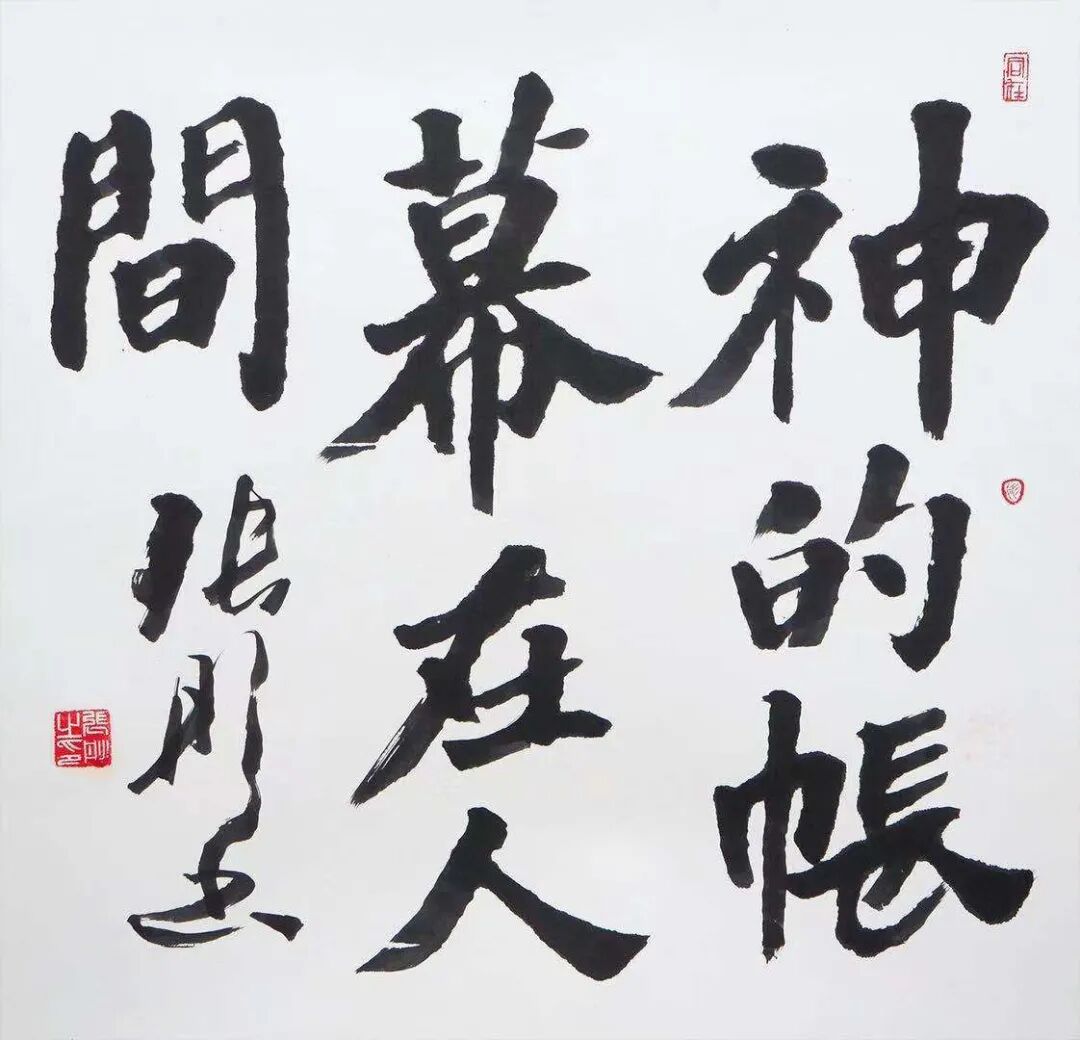 神的帳
幕在人
間
張
之印